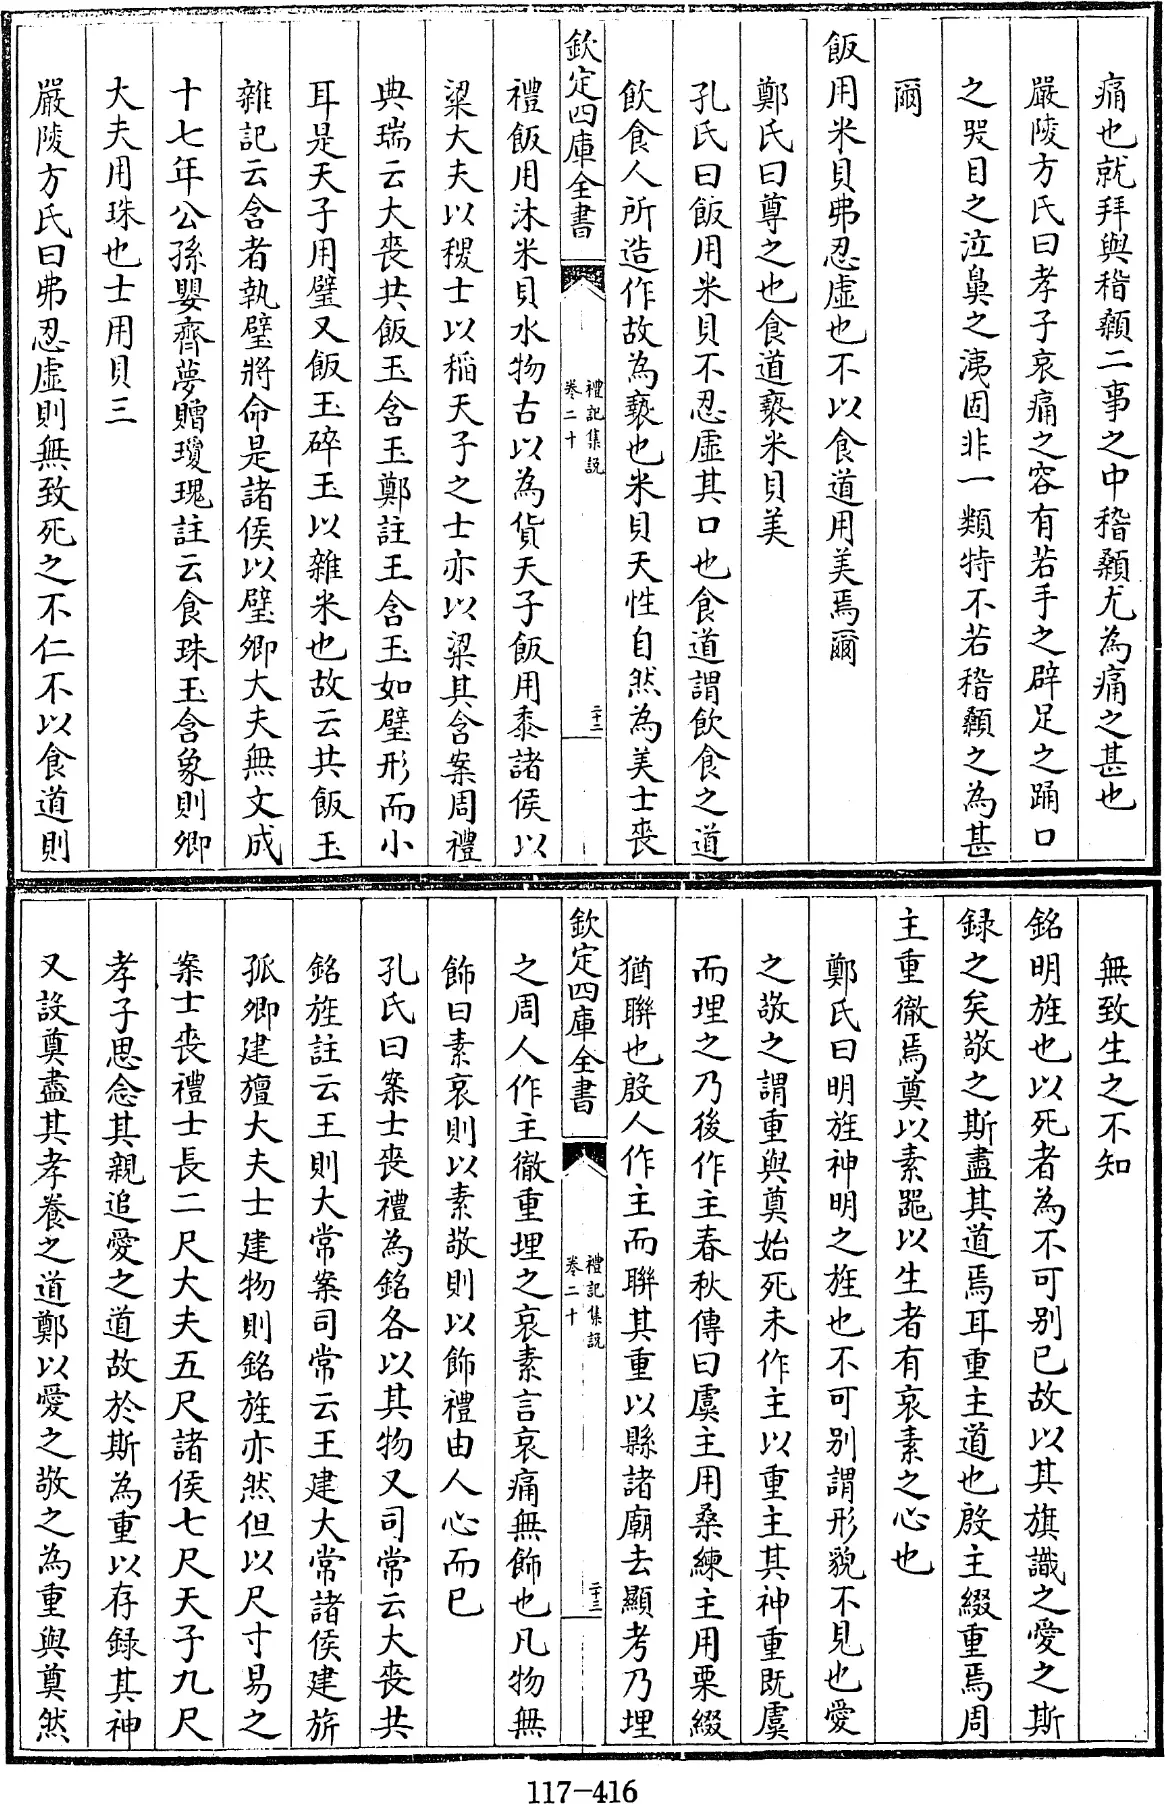 痛也就拜與稽顙二事之中稽顙尤為痛之甚也
嚴陵方氏曰孝子哀痛之容有若手之辟足之踊口
之哭目之泣鼻之洟固非一類特不若稽顙之為甚
爾
飯用米貝弗忍虛也不以食道用美焉爾
鄭氏曰尊之也食道褻米貝美
孔氏曰飯用米貝不忍虛其口也食道謂飲食之道
飲食人所造作故為褻也米貝天性自然為美士喪
欽定四庫全書
禮記集說
卷二十
二十二
禮飯用沐米貝水物古以為貨天子飯用黍諸侯以
粱大夫以稷士以稻天子之士亦以粱其含案周禮
典瑞云大喪共飯玉含玉鄭註玉含玉如璧形而小
耳是天子用璧又飯玉碎玉以雜米也故云共飯玉
雜記云含者執璧將命是諸侯以璧卿大夫無文成
十七年公孫嬰齊夢贈瓊瑰註云食珠玉含象則卿
大夫用珠也士用貝三
嚴陵方氏曰弗忍虛則無致死之不仁不以食道則
無致生之不知
銘明旌也以死者為不可别已故以其旗識之愛之斯
録之矣敬之斯盡其道焉耳重主道也殷主綴重焉周
主重徹焉奠以素器以生者有哀素之心也
鄭氏曰明旌神明之旌也不可别謂形貌不見也愛
之敬之謂重與奠始死未作主以重主其神重既虞
而埋之乃後作主春秋傳曰虞主用桑練主用栗綴
猶聯也殷人作主而聯其重以縣諸廟去顯考乃埋
欽定四庫全書
禮記集說
卷二十
二十三
之周人作主徹重埋之哀素言哀痛無飾也凡物無
飾曰素哀則以素敬則以飾禮由人心而已
孔氏曰案士喪禮為銘各以其物又司常云大喪共
銘旌註云王則大常案司常云王建大常諸侯建旂
孤卿建旜大夫士建物則銘旌亦然但以尺寸易之
案士喪禮士長二尺大夫五尺諸侯七尺天子九尺
孝子思念其親追愛之道故於斯為重以存録其神
又設奠盡其孝養之道鄭以愛之敬之為重與奠然
117-416